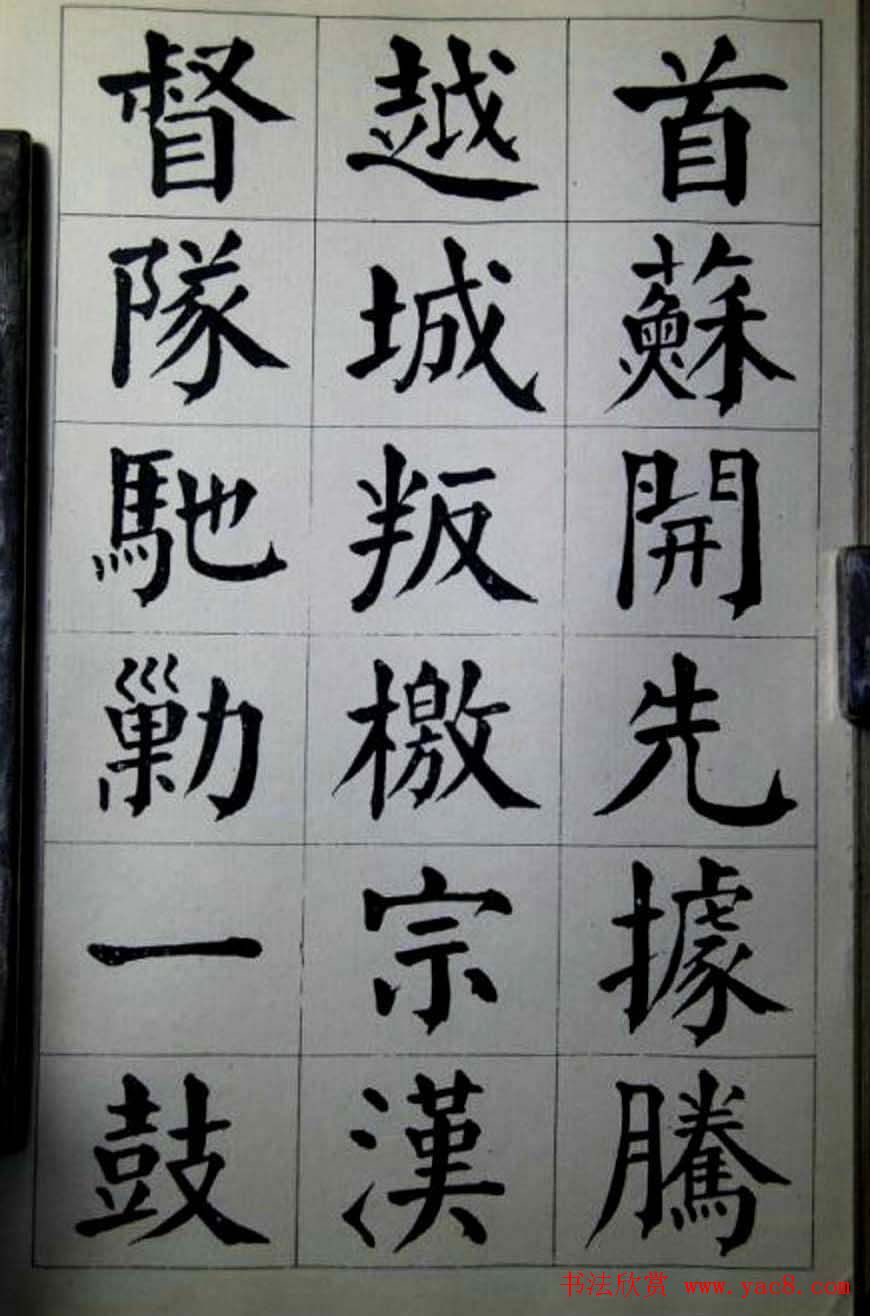 首蘇開先據騰
越城叛檄宗漢
督隊馳勦一鼓
书法欣赏 www.yac8.com